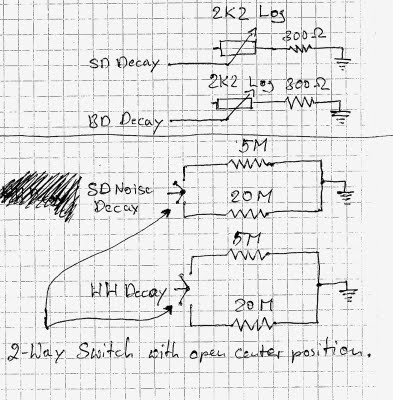 2K2 Log
300Ω
SD Decay
2K2 Log
300Ω
BD Decay
5M
SD Noise
Decay
20M
5M
HH Decay
20M
2-Way Switch with open center position.